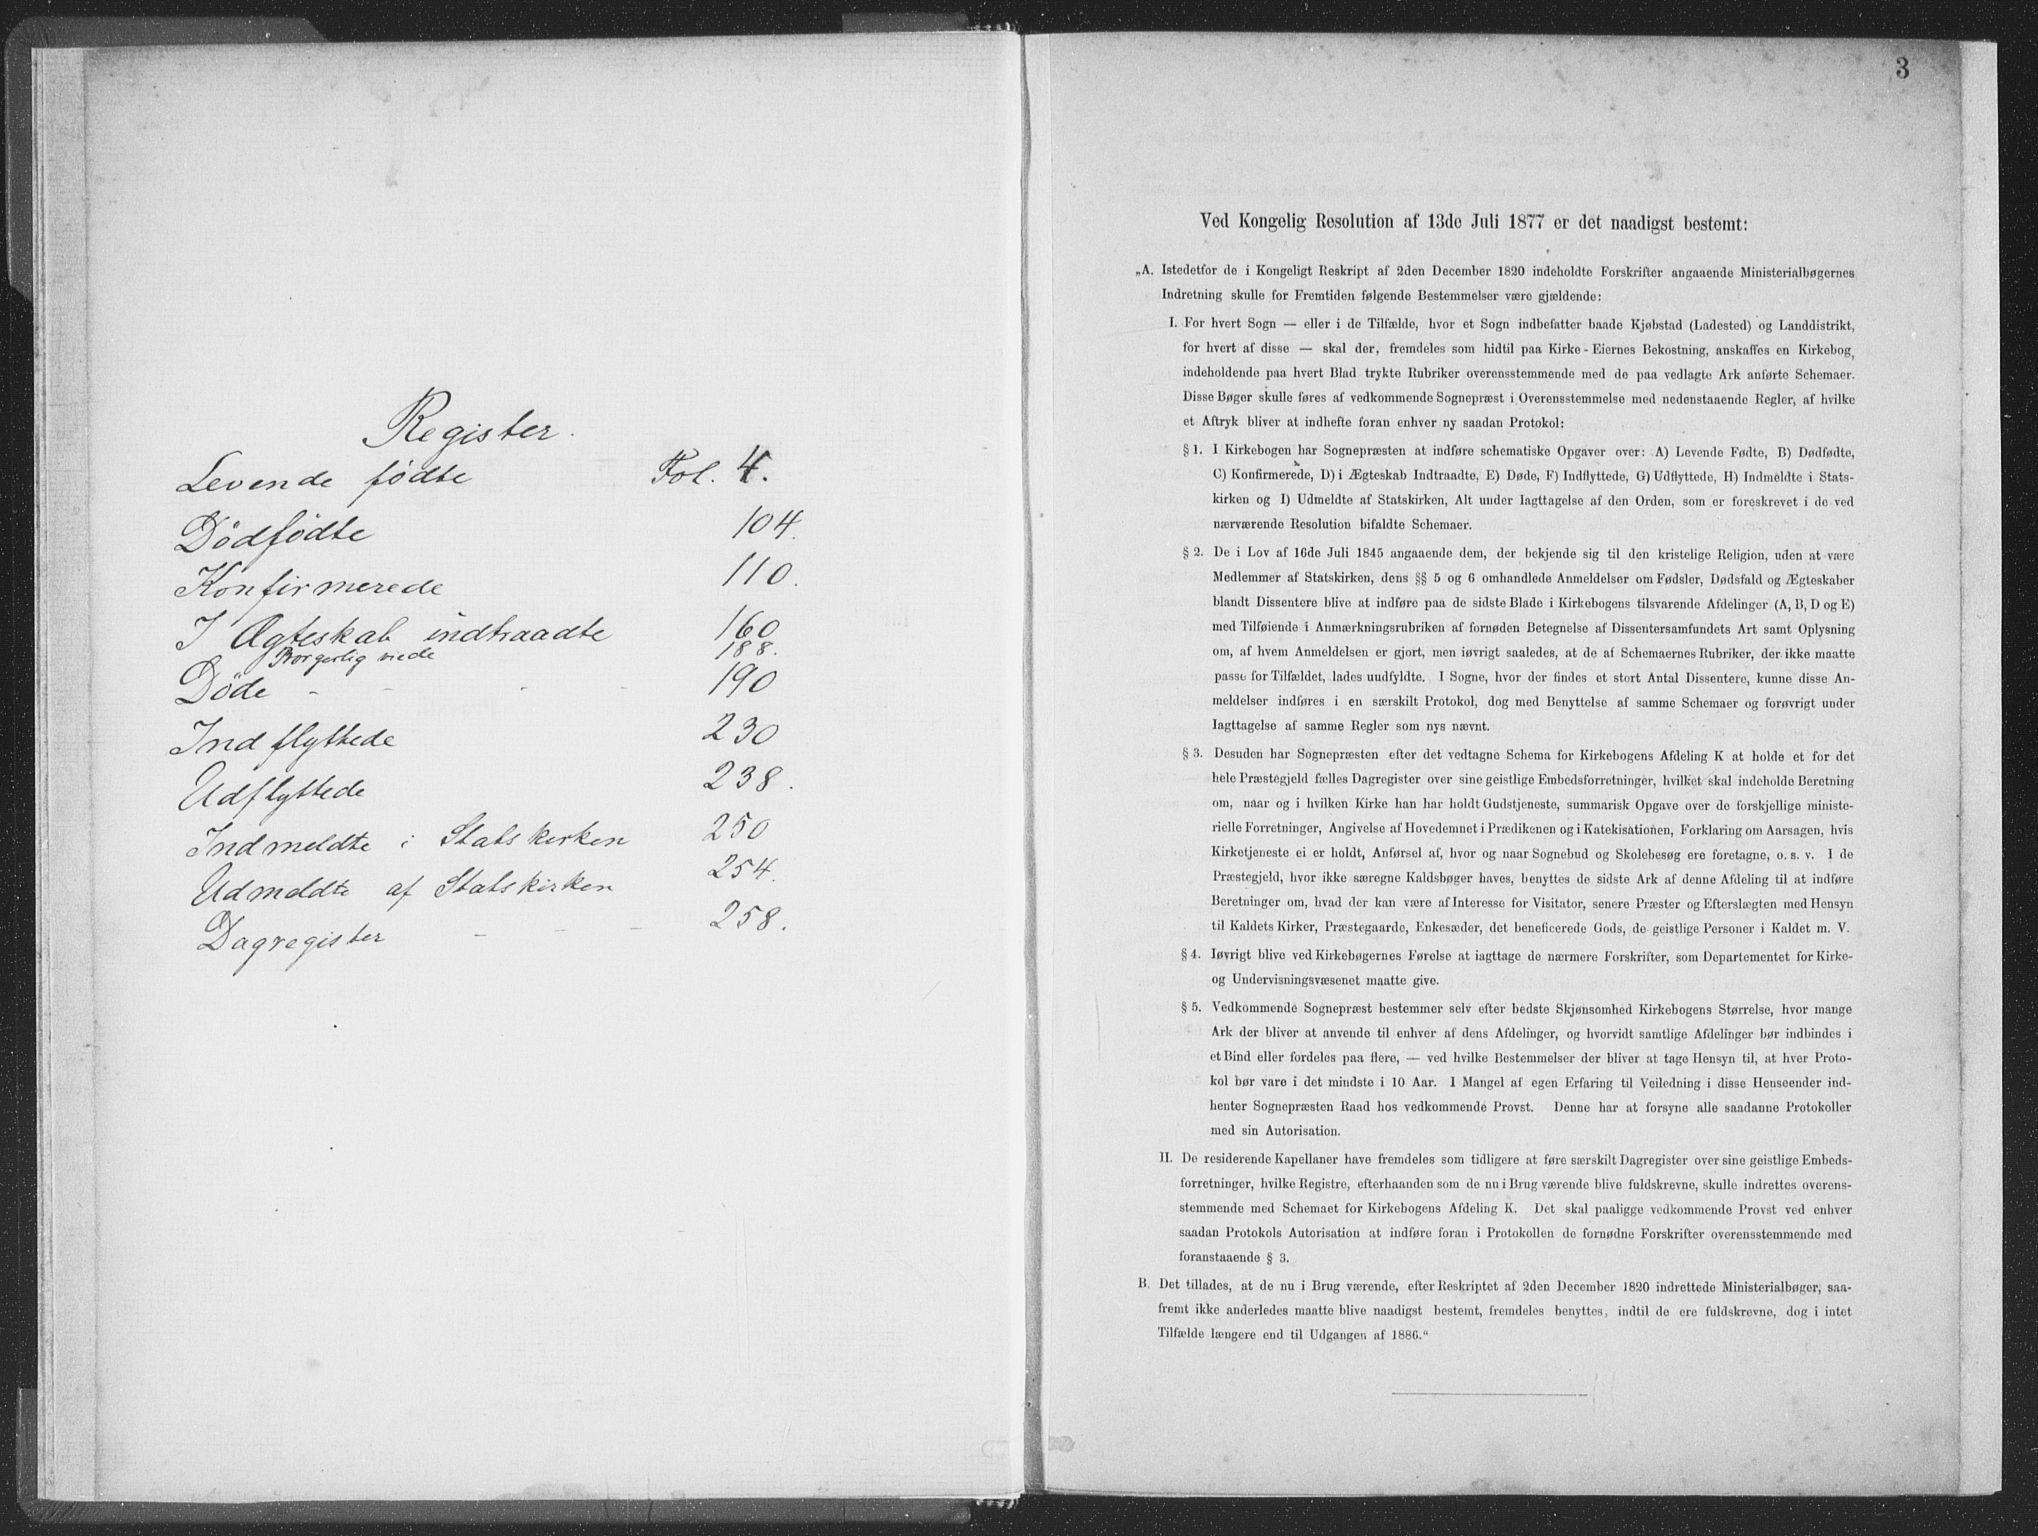 Register.
Levende fødte Fol. 4.
Dödfödte 104.
Konfirmerede 110.
I Ægteskab indtraadte 160
Borgerlig viede 188.
Döde - - - - 190
Indflyttede 230
Udflyttede 238.
Indmeldte i Statskirken 250
Udmeldte af Statskirken 254.
Dagregister - - - 258.
3
Ved Kongelig Resolution af 13de Juli 1877 er det naadigst bestemt:
„A. Istedetfor de i Kongeligt Reskript af 2den December 1820 indeholdte Forskrifter angaaende Ministerialbøgernes
Indretning skulle for Fremtiden følgende Bestemmelser være gjældende:
I. For hvert Sogn — eller i de Tilfælde, hvor et Sogn indbefatter baade Kjøbstad (Ladested) og Landdistrikt,
for hvert af disse — skal der, fremdeles som hidtil paa Kirke-Eiernes Bekostning, anskaffes en Kirkebog,
indeholdende paa hvert Blad trykte Rubriker overensstemmende med de paa vedlagte Ark anførte Schemaer.
Disse Bøger skulle føres af vedkommende Sognepræst i Overensstemmelse med nedenstaaende Regler, af hvilke
et Aftryk bliver at indhefte foran enhver ny saadan Protokol:
§ 1. I Kirkebogen har Sognepræsten at indføre schematiske Opgaver over: A) Levende Fødte, B) Dødfødte,
C) Konfirmerede, D) i Ægteskab Indtraadte, E) Døde, F) Indflyttede, G) Udflyttede, H) Indmeldte i Stats-
kirken og I) Udmeldte af Statskirken, Alt under Iagttagelse af den Orden, som er foreskrevet i de ved
nærværende Resolution bifaldte Schemaer.
§ 2. De i Lov af 16de Juli 1845 angaaende dem, der bekjende sig til den kristelige Religion, uden at være
Medlemmer af Statskirken, dens §§ 5 og 6 omhandlede Anmeldelser om Fødsler, Dødsfald og Ægteskaber
blandt Dissentere blive at indføre paa de sidste Blade i Kirkebogens tilsvarende Afdelinger (A, B, D og E)
med Tilføiende i Anmærkningsrubriken af fornøden Betegnelse af Dissentersamfundets Art samt Oplysning
om, af hvem Anmeldelsen er gjort, men iøvrigt saaledes, at de af Schemaernes Rubriker, der ikke maatte
passe for Tilfældet, lades uudfyldte. I Sogne, hvor der findes et stort Antal Dissentere, kunne disse An-
meldelser indføres i en særskilt Protokol, dog med Benyttelse af samme Schemaer og forøvrigt under
Iagttagelse af samme Regler som nys nævnt.
§ 3. Desuden har Sognepræsten efter det vedtagne Schema for Kirkebogens Afdeling K at holde et for det
hele Præstegjeld fælles Dagregister over sine geistlige Embedsforretninger, hvilket skal indeholde Beretning
om, naar og i hvilken Kirke han har holdt Gudstjeneste, summarisk Opgave over de forskjellige ministe-
rielle Forretninger, Angivelse af Hovedemnet i Prædikenen og i Katekisationen, Forklaring om Aarsagen, hvis
Kirketjeneste ei er holdt, Anførsel af, hvor og naar Sognebud og Skolebesøg ere foretagne, o. s. v. I de
Præstegjeld, hvor ikke særegne Kaldsbøger haves, benyttes de sidste Ark af denne Afdeling til at indføre
Beretninger om, hvad der kan være af Interesse for Visitator, senere Præster og Efterslægten med Hensyn
til Kaldets Kirker, Præstegaarde, Enkesæder, det beneficerede Gods, de geistlige Personer i Kaldet m. V.
§ 4. Iøvrigt blive ved Kirkebøgernes Førelse at iagttage de nærmere Forskrifter, som Departementet for Kirke-
og Undervisningsvæsenet maatte give.
§ 5. Vedkommende Sognepræst bestemmer selv efter bedste Skjønsomhed Kirkebogens Størrelse, hvor mange
Ark der bliver at anvende til enhver af dens Afdelinger, og hvorvidt samtlige Afdelinger bør indbindes i
et Bind eller fordeles paa flere, — ved hvilke Bestemmelser der bliver at tage Hensyn til, at hver Proto-
kol bør vare i det mindste i 10 Aar. I Mangel af egen Erfaring til Veiledning i disse Henseender ind-
henter Sognepræsten Raad hos vedkommende Provst. Denne har at forsyne alle saadanne Protokoller
med sin Autorisation.
II. De residerende Kapellaner have fremdeles som tidligere at føre særskilt Dagregister over sine geistlige Embeds-
forretninger, hvilke Registre, efterhaanden som de nu i Brug værende blive fuldskrevne, skulle indrettes overens-
stemmende med Schemaet for Kirkebogens Afdeling K. Det skal paaligge vedkommende Provst ved enhver
saadan Protokols Autorisation at indføre foran i Protokollen de fornødne Forskrifter overensstemmende med
foranstaaende § 3.
B. Det tillades, at de nu i Brug værende, efter Reskriptet af 2den December 1820 indrettede Ministerialbøger, saa-
fremt ikke anderledes maatte blive naadigst bestemt, fremdeles benyttes, indtil de ere fuldskrevne, dog i intet
Tilfælde længere end til Udgangen af 1886.“